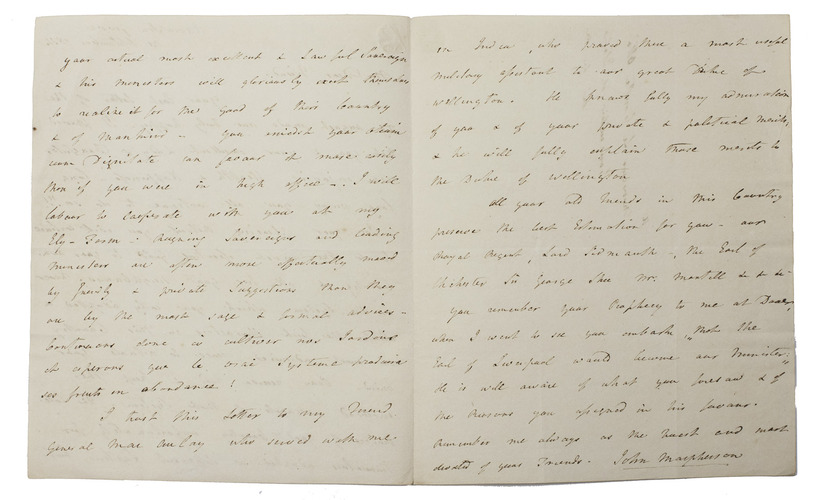 your actual most excellent & Lawful Sovereign
& his ministers will gloriously exert themselves
to realize it for the good of their Country
& of Mankind – you amidst your otium
cum Dignitate can favour it more
than if you were in high office – I will
labour to cooperate with you at my
Ely-Farm: Reigning Sovereigns and leading
ministers are often more effectually moved
by friendly & private Suggestions than they
are by the most sage & formal advices –
Continuons donc à cultiver nos Jardins
et esperons que le vrai Systeme produira
ses fruits en abundance!
I trust this Letter to my Friend
General Mac Aulay who served with me
in India, who proved there a most useful
military assistant to our great Duke of
Wellington. He knows fully my admiration
of you & of your private & political Merits,
& he will fully explain those merits to
the Duke of Wellington
All your old friends in this Country
preserve the best Estimation for you – our
Royal Regent, Lord Sidmouth –, the Earl of
Ilchester Sir George Shee Mr. & & &c
you remember your Prophecy to me at
when I went to see you embark, "That the
Earl of Liverpool would become our Minister;"
He is well aware of what you foresaw & of
the Reasons you assigned in his favour.
Remember me always as the and most
devoted of your Friends – John Macpherson